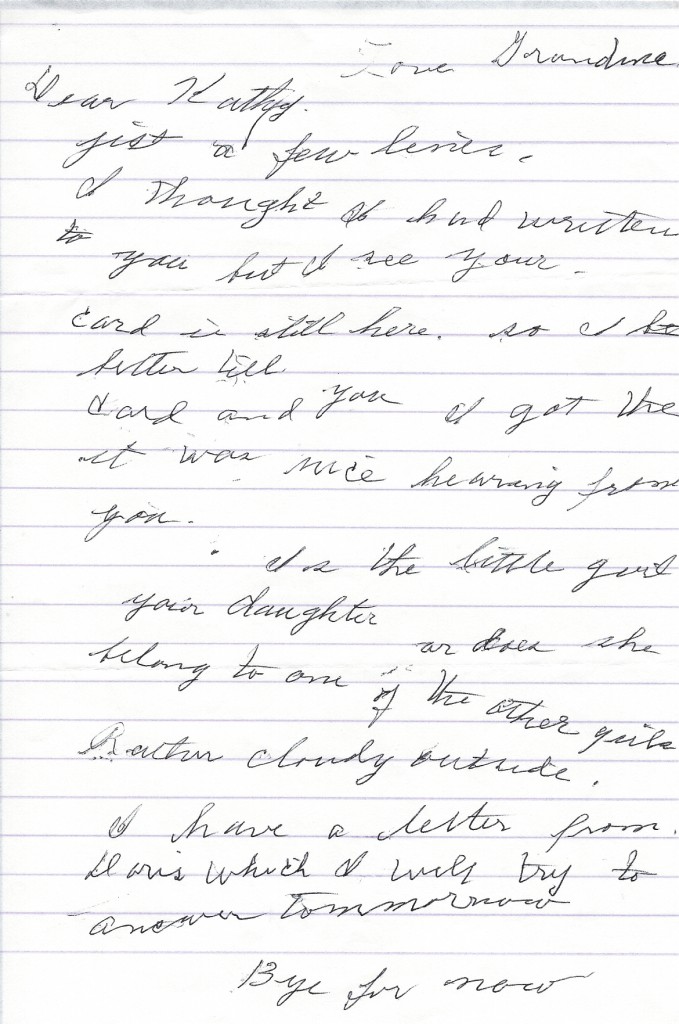 Love Grandma
Dear Kathy.
jist a few lines.
I thought I had written
to you but I see your
card is still here. so I
better tell
you I got the
card and
it was nice hearing from
you.
Is the little girl
your daughter
or does she
belong to one of the other girls
Rather cloudy outside.
I have a letter from
Doris which I will try to
answer tommorrow
Bye for now